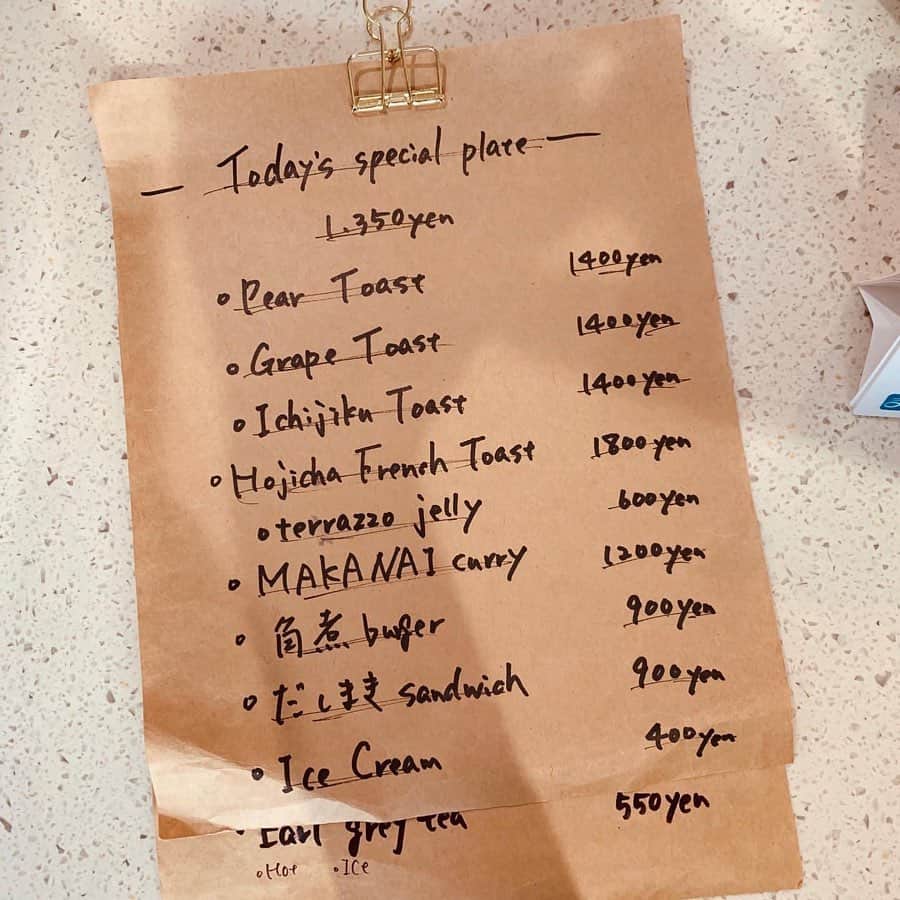 — Today's special plate —
1.350yen
• Pear Toast 1400yen
• Grape Toast 1400yen
• Ichijiku Toast 1400yen
• Hojicha French Toast 1800yen
• terrazzo jelly 600yen
• MAKANAI curry 1200yen
• 角煮 burger 900yen
• だしまき sandwich 900yen
• Ice Cream 400yen
• Earl grey tea 550yen
• Hot • Ice